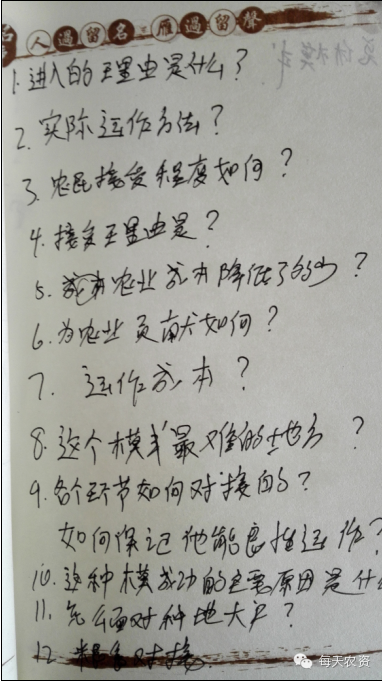 人過留名 雁過留聲
1. 进入的理由是什么?
2. 实际运作方法?
3. 农民接受程度如何?
4. 接受理由是?
5. 农业成本降低了多少?
6. 为农业贡献如何?
7. 运作成本?
8. 这个模式最难的地方?
9. 各个环节如何对接的?
如何保证他能良性运作?
10. 这种模成功的主要原因是什
11. 怎么面对种地大户?
12. 粮食对接
每天农资